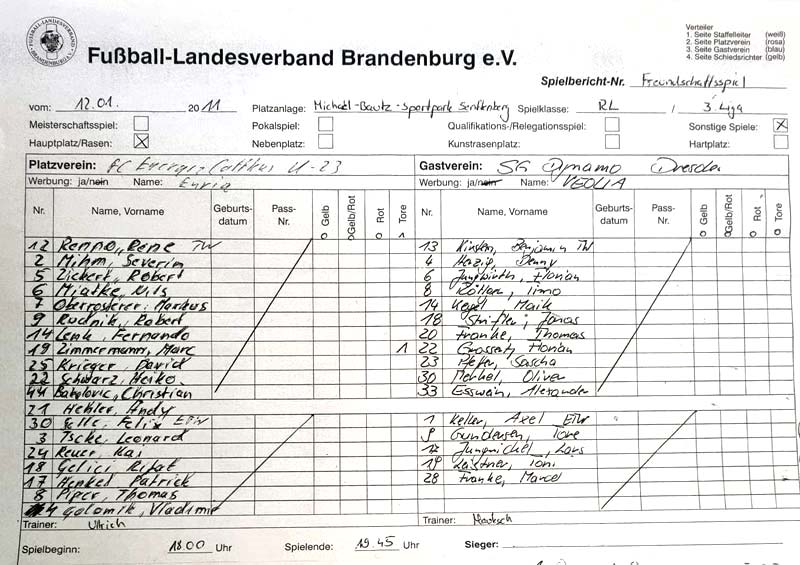 FUSSBALL-LANDESVERBAND BRANDENBURG e.V.
Fußball-Landesverband Brandenburg e.V.
Verteiler
1. Seite Staffelleiter (weiß)
2. Seite Platzverein (rosa)
3. Seite Gastverein (blau)
4. Seite Schiedsrichter (gelb)
Spielbericht-Nr. Freundschaftsspiel
vom: 12.01. 2011 Platzanlage: Sportpark Senftenberg Spielklasse: RL / 3. Liga
Meisterschaftsspiel: Pokalspiel: Qualifikations-/Relegationsspiel: Sonstige Spiele: X
Hauptplatz/Rasen: X Nebenplatz: Kunstrasenplatz: Hartplatz:
Platzverein: FC Energie Cottbus U-23 Gastverein: SG Dynamo Dresden
Werbung: ja/nein Name: Envia Werbung: ja/nein Name: VEOLIA
Nr. Name, Vorname Geburts-datum Pass-Nr. Gelb Gelb/Rot Rot Tore Nr. Name, Vorname Geburts-datum Pass-Nr. Gelb Gelb/Rot Rot Tore
0 0 0 1 0 0 0 0
12 Renno, Rene TW 13 Kirsten, Benjamin TW
2 Mihm, Severin 4 Herzig, Denny
5 Zickert, Robert 6 Jungwirth, Florian
6 Miatke, Nils 8 Röttger, Timo
7 Oberrosterer, Markus 14 Kegel Maik
9 Rudnik, Robert 18 Strifler, Jonas
14 Lenk, Fernando 20 Franke, Thomas
19 Zimmermann, Marc 1 22 Grossert, Florian
25 Krieger, David 23 Pfeffer, Sascha
22 Schwarz, Heiko 30 Merkel Oliver
44 Bakalovic, Christian 33 Esswein, Alexander
21 Hebler, Andy
30 Felix ETW 1 Keller, Axel ETW
3 Tscke, Leonard 9 Gundersen, Tore
24 Reuer, Kai 17 Jungnickel, Lars
18 Gelici Rifat 19 Leistner, Toni
17 Henkel Patrick 28 Franke, Marcel
8 Piper, Thomas
Golomik, Vladimir
Trainer: Ullrich Trainer:
Spielbeginn: 18.00 Uhr Spielende: 19.45 Uhr Sieger: